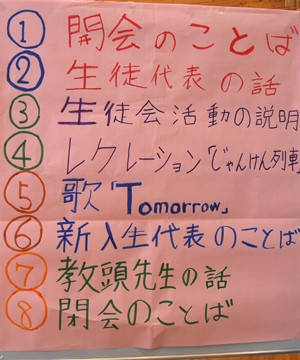 ① 開会のことば
② 生徒代表の話
③ 生徒会活動の説明
④ レクレーション「じゃんけん列車
⑤ 歌「Tomorrow」
⑥ 新入生代表のことば
⑦ 教頭先生の話
⑧ 閉会のことば